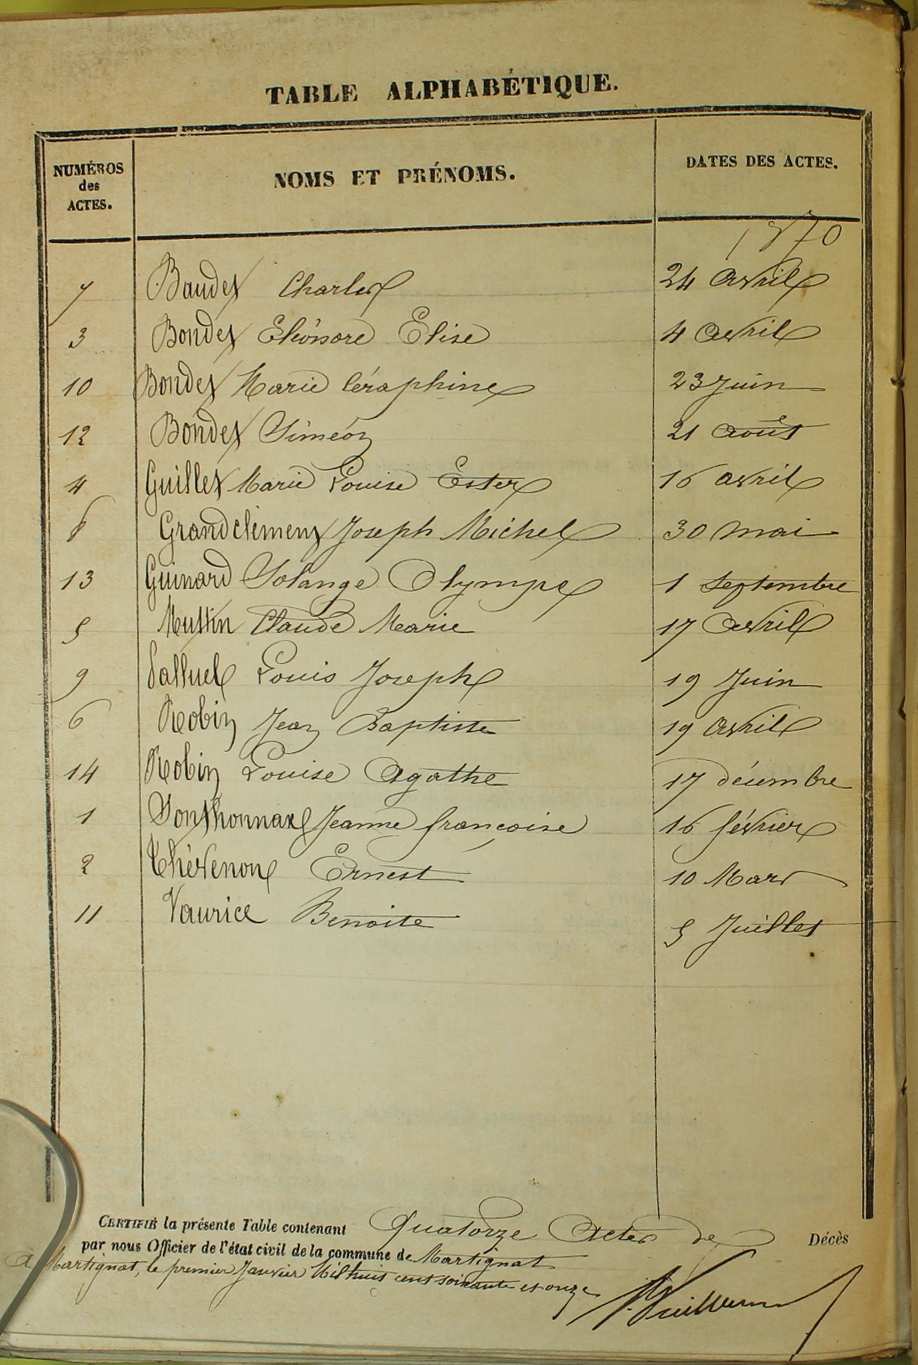 TABLE ALPHABÉTIQUE.
NUMÉROS des ACTES. NOMS ET PRÉNOMS. DATES DES ACTES.
1870
7 Baudet Charles 24 avril
3 Bondet Eléonore Elise 4 avril
10 Bondet Marie Céraphine 23 juin
12 Bondet Siméon 21 août
4 Guillet Marie Louise Ester 16 avril
8 Grandclément Joseph Michel 30 mai
13 Guinard Solange Olympe 1 septembre
5 Claude Marie 17 avril
9 Louis Joseph 19 Juin
6 Robin Jean Baptiste 19 avril
14 Robin Louise Agathe 17 décembre
1 Sonthonnax Jeanne françoise 16 février
2 Thévenon Ernest 10 Mars
11 Vaurice Benoite 5 Juillet
CERTIFIÉ la présente Table contenant Quatorze Actes de Décès
par nous Officier de l'état civil de la commune de Martignat
A Martignat, le premier Janvier Mil huit cent soixante et onze